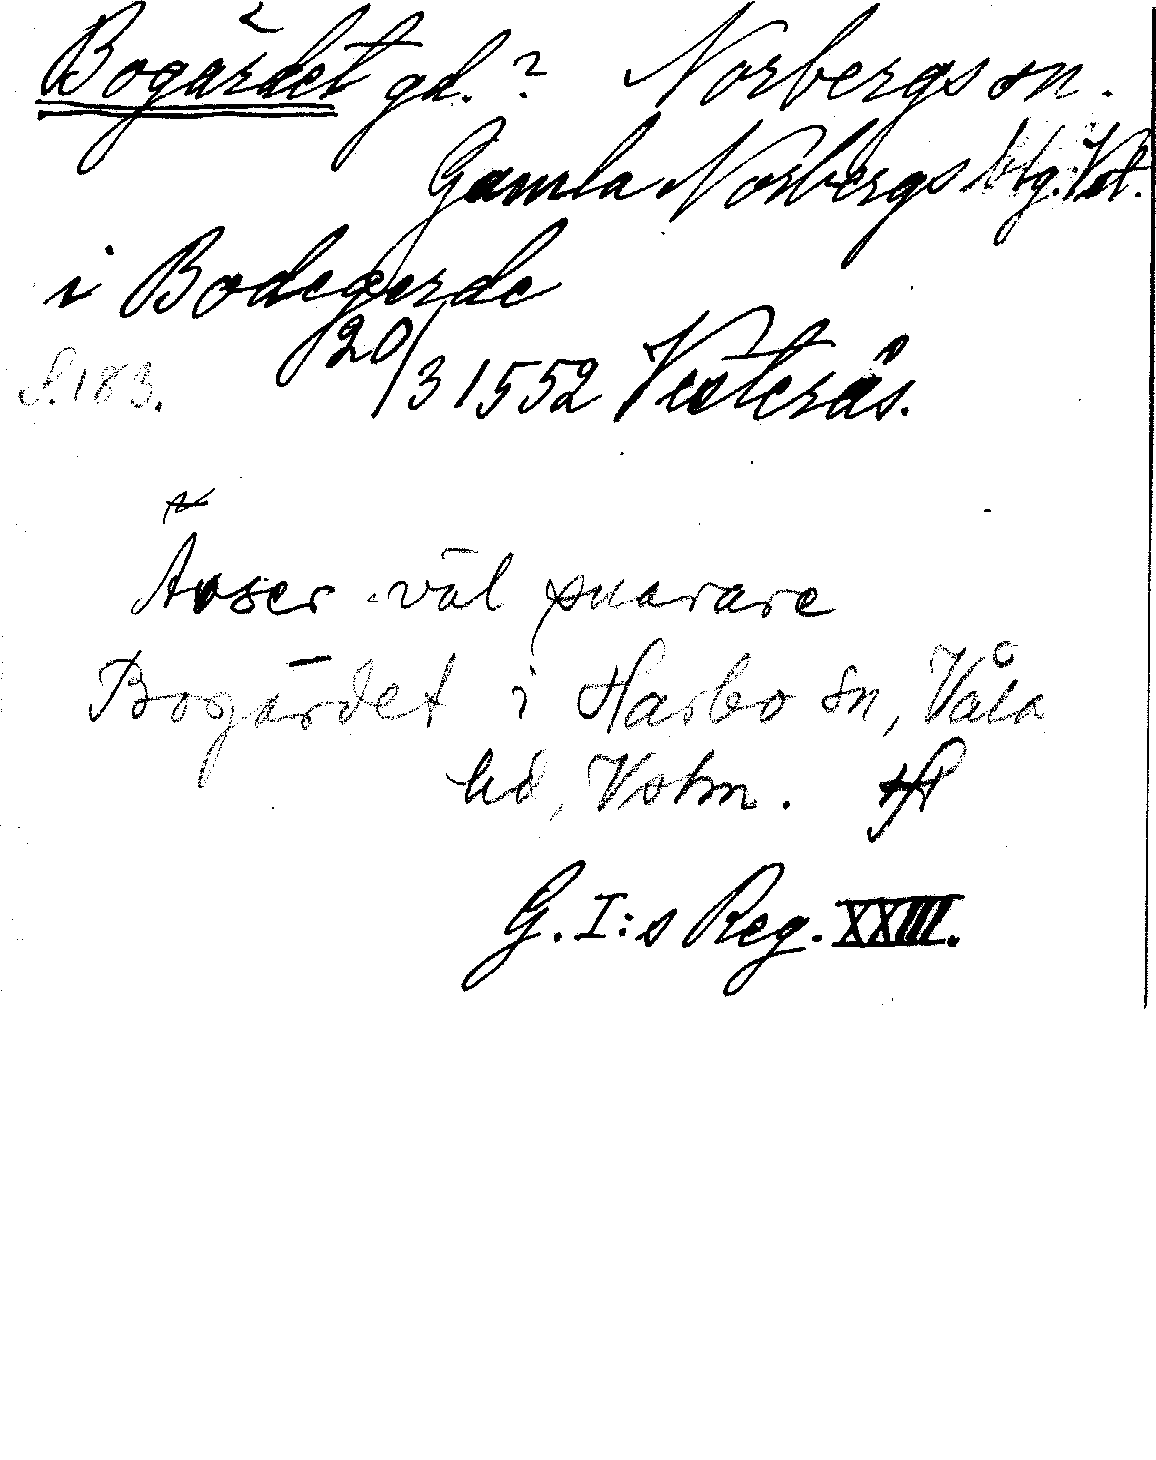 Bogärdet gd. ? Norbergs sn.
Gamla Norbergs btg. Vstm.
i Bodegerde
20/3 1552 Vesterås.
S. 183.
Avser väl snarare
Bogärdet i Harbo sn, Våla
hd, Vstm.
G. I:s Reg. XXIII.